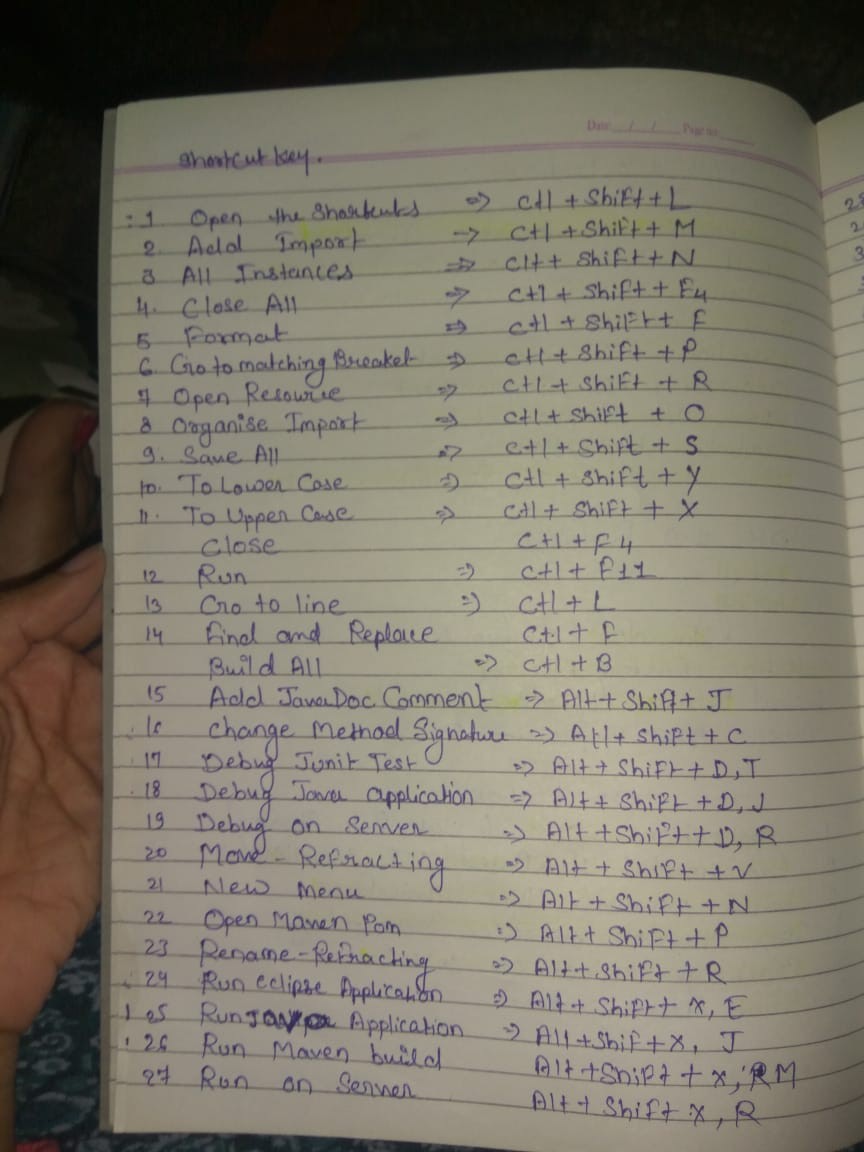 Date __/__/__ Page no ____
Shortcut key.
:1 Open the Shortcuts => Ctl + Shift + L
2. Add Import -> Ctl + Shift + M
3 All Instances => Clt + Shift + N
4. Close All => Ctl + Shift + F4
5 Format => Ctl + Shift + F
6. Go to matching Breaket => Ctl + Shift + P
7 Open Resource => Ctl + Shift + R
8 Organise Import => Ctl + Shift + O
9. Save All => Ctl + Shift + S
10. To Lower Case => Ctl + Shift + Y
11. To Upper Case => Ctl + Shift + X
Close Ctl + F4
12 Run => Ctl + F11
13 Go to line => Ctl + L
14 Find and Replace Ctl + F
Build All => Ctl + B
15 Add JavaDoc Comment => Alt + Shift + J
16 Change Method Signature => Atl + Shift + C
17 Debug Junit Test => Alt + Shift + D, T
18 Debug Java application => Alt + Shift + D, J
19 Debug on Server => Alt + Shift + D, R
20 Move - Refracting => Alt + Shift + V
21 New menu => Alt + Shift + N
22 Open Maven Pom => Alt + Shift + P
23 Rename - Refracting => Alt + Shift + R
24 Run eclipse Application => Alt + Shift + X, E
25 Run Java Application => Alt + Shif + X, J
26 Run Maven build Alt + Shift + X, M
27 Run on Server Alt + Shift X, R